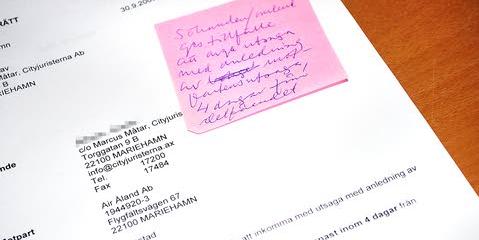 30.9.
RÄTT
mn
av
Måtar, Cityjuristerna Ab
9 B
MARIEHAMN
Sökanden/ombud
ges tillfälle
att avge utsaga
med anledning
av mot-
partens utsaga,
4 dagar från
delfåendet
c/o Marcus Måtar, Cityjuris
Torggatan 9 B
22100 MARIEHAMN
info@cityjuristerna.ax
Tel. 17200
Fax 17484
nde
Air Åland Ab
1944920-3
Flygfältsvägen 67
22100 MARIEHAMN
Motpart
stad
att inkomma med utsaga med anledning av
nast inom 4 dagar från